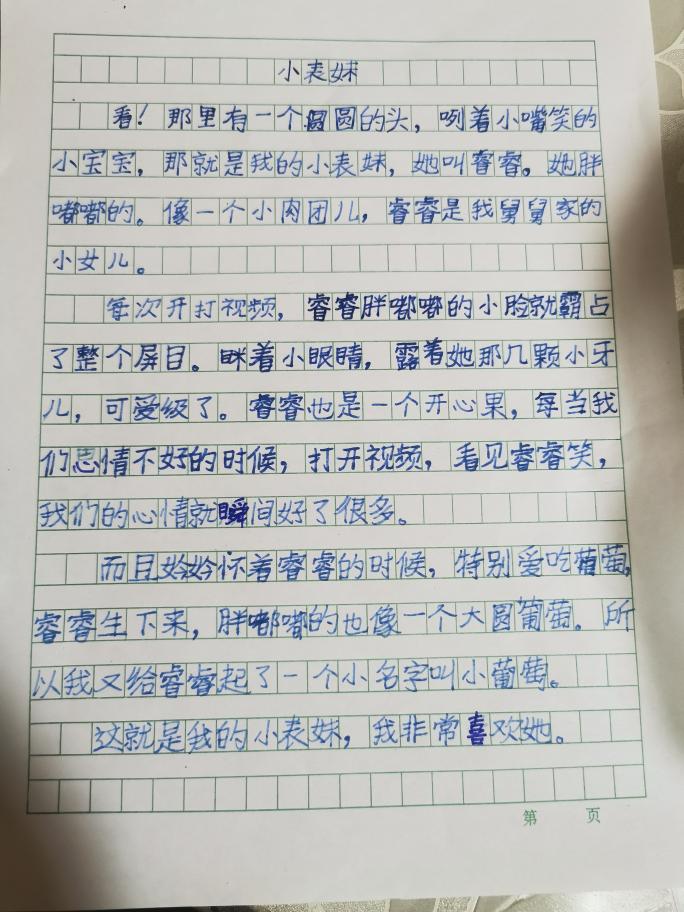 小表妹
看！那里有一个圆圆的头，咧着小嘴笑的
小宝宝，那就是我的小表妹，她叫睿睿。她胖
嘟嘟的。像一个小肉团儿，睿睿是我舅舅家的
小女儿。
每次开打视频，睿睿胖嘟嘟的小脸就霸占
了整个屏目。眯着小眼睛，露着她那几颗小牙
儿，可爱级了。睿睿也是一个开心果，每当我
们思情不好的时候，打开视频，看见睿睿笑，
我们的心情就瞬间好了很多。
而且妗妗怀着睿睿的时候，特别爱吃葡萄，
睿睿生下来，胖嘟嘟的也像一个大圆葡萄。所
以我又给睿睿起了一个小名字叫小葡萄。
这就是我的小表妹，我非常喜欢她。
第 页